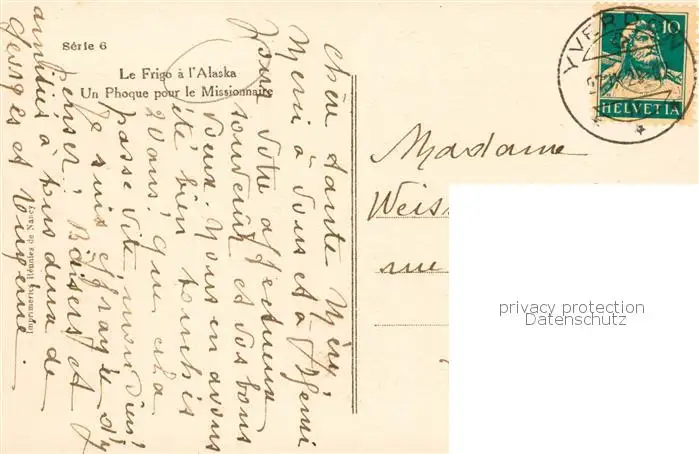 Série 6
Le Frigo à l'Alaska
Un Phoque pour le Missionnaire
Imprimeries Réunies de Nancy
chère tante Méry,
Merci à vous et à
pour votre affectueux
souvenir et vos bons
voeux. Nous en avons
été bien touchés
20 ans! que cela
passe vite, mon Dieu!
Je suis effrayée d'y
penser! Baisers et
amitiés à tous deux de
Georges et
Madame
rue
YVERDON
10
HELVETIA
privacy protection
Datenschutz